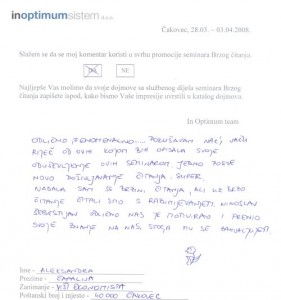 inoptimumsistem d.o.o.
Čakovec, 28.03. – 03.04.2008.
Slažem se da se moj komentar koristi u svrhu promocije seminara Brzog čitanja.
DA NE
Najljepše Vas molimo da svoje dojmove sa službenog dijela seminara Brzog
čitanja zapišete ispod, kako bismo Vaše impresije uvrstili u katalog dojmova.
In Optimum team
ODLIČNO, FENOMENALNO... POKUŠAVAM NAĆI VEĆU
RIJEČ OD OVIH KOJOM BIH OPISALA SVOJE
ODUŠEVLJENJE OVIM SEMINAROM. JEDNO POSVE
NOVO DOŽIVLJAVANJE ČITANJA. SUPER.
NADALA SAM SE BRZINI ČITANJA, ALI UZ BRZO
ČITANJE ČITALI SMO S RAZUMIJEVANJEM.
ODLIČNO NAS JE MOTIVIRAO I PRENIO
SVOJE ZNANJE NA NAS, STOGA MU SE ZAHVALJUJEM
Ime - ALEKSANDRA
Prezime -
Zanimanje - VIŠI EKONOMIST
Poštanski broj i mjesto - 40 000 ČAKOVEC